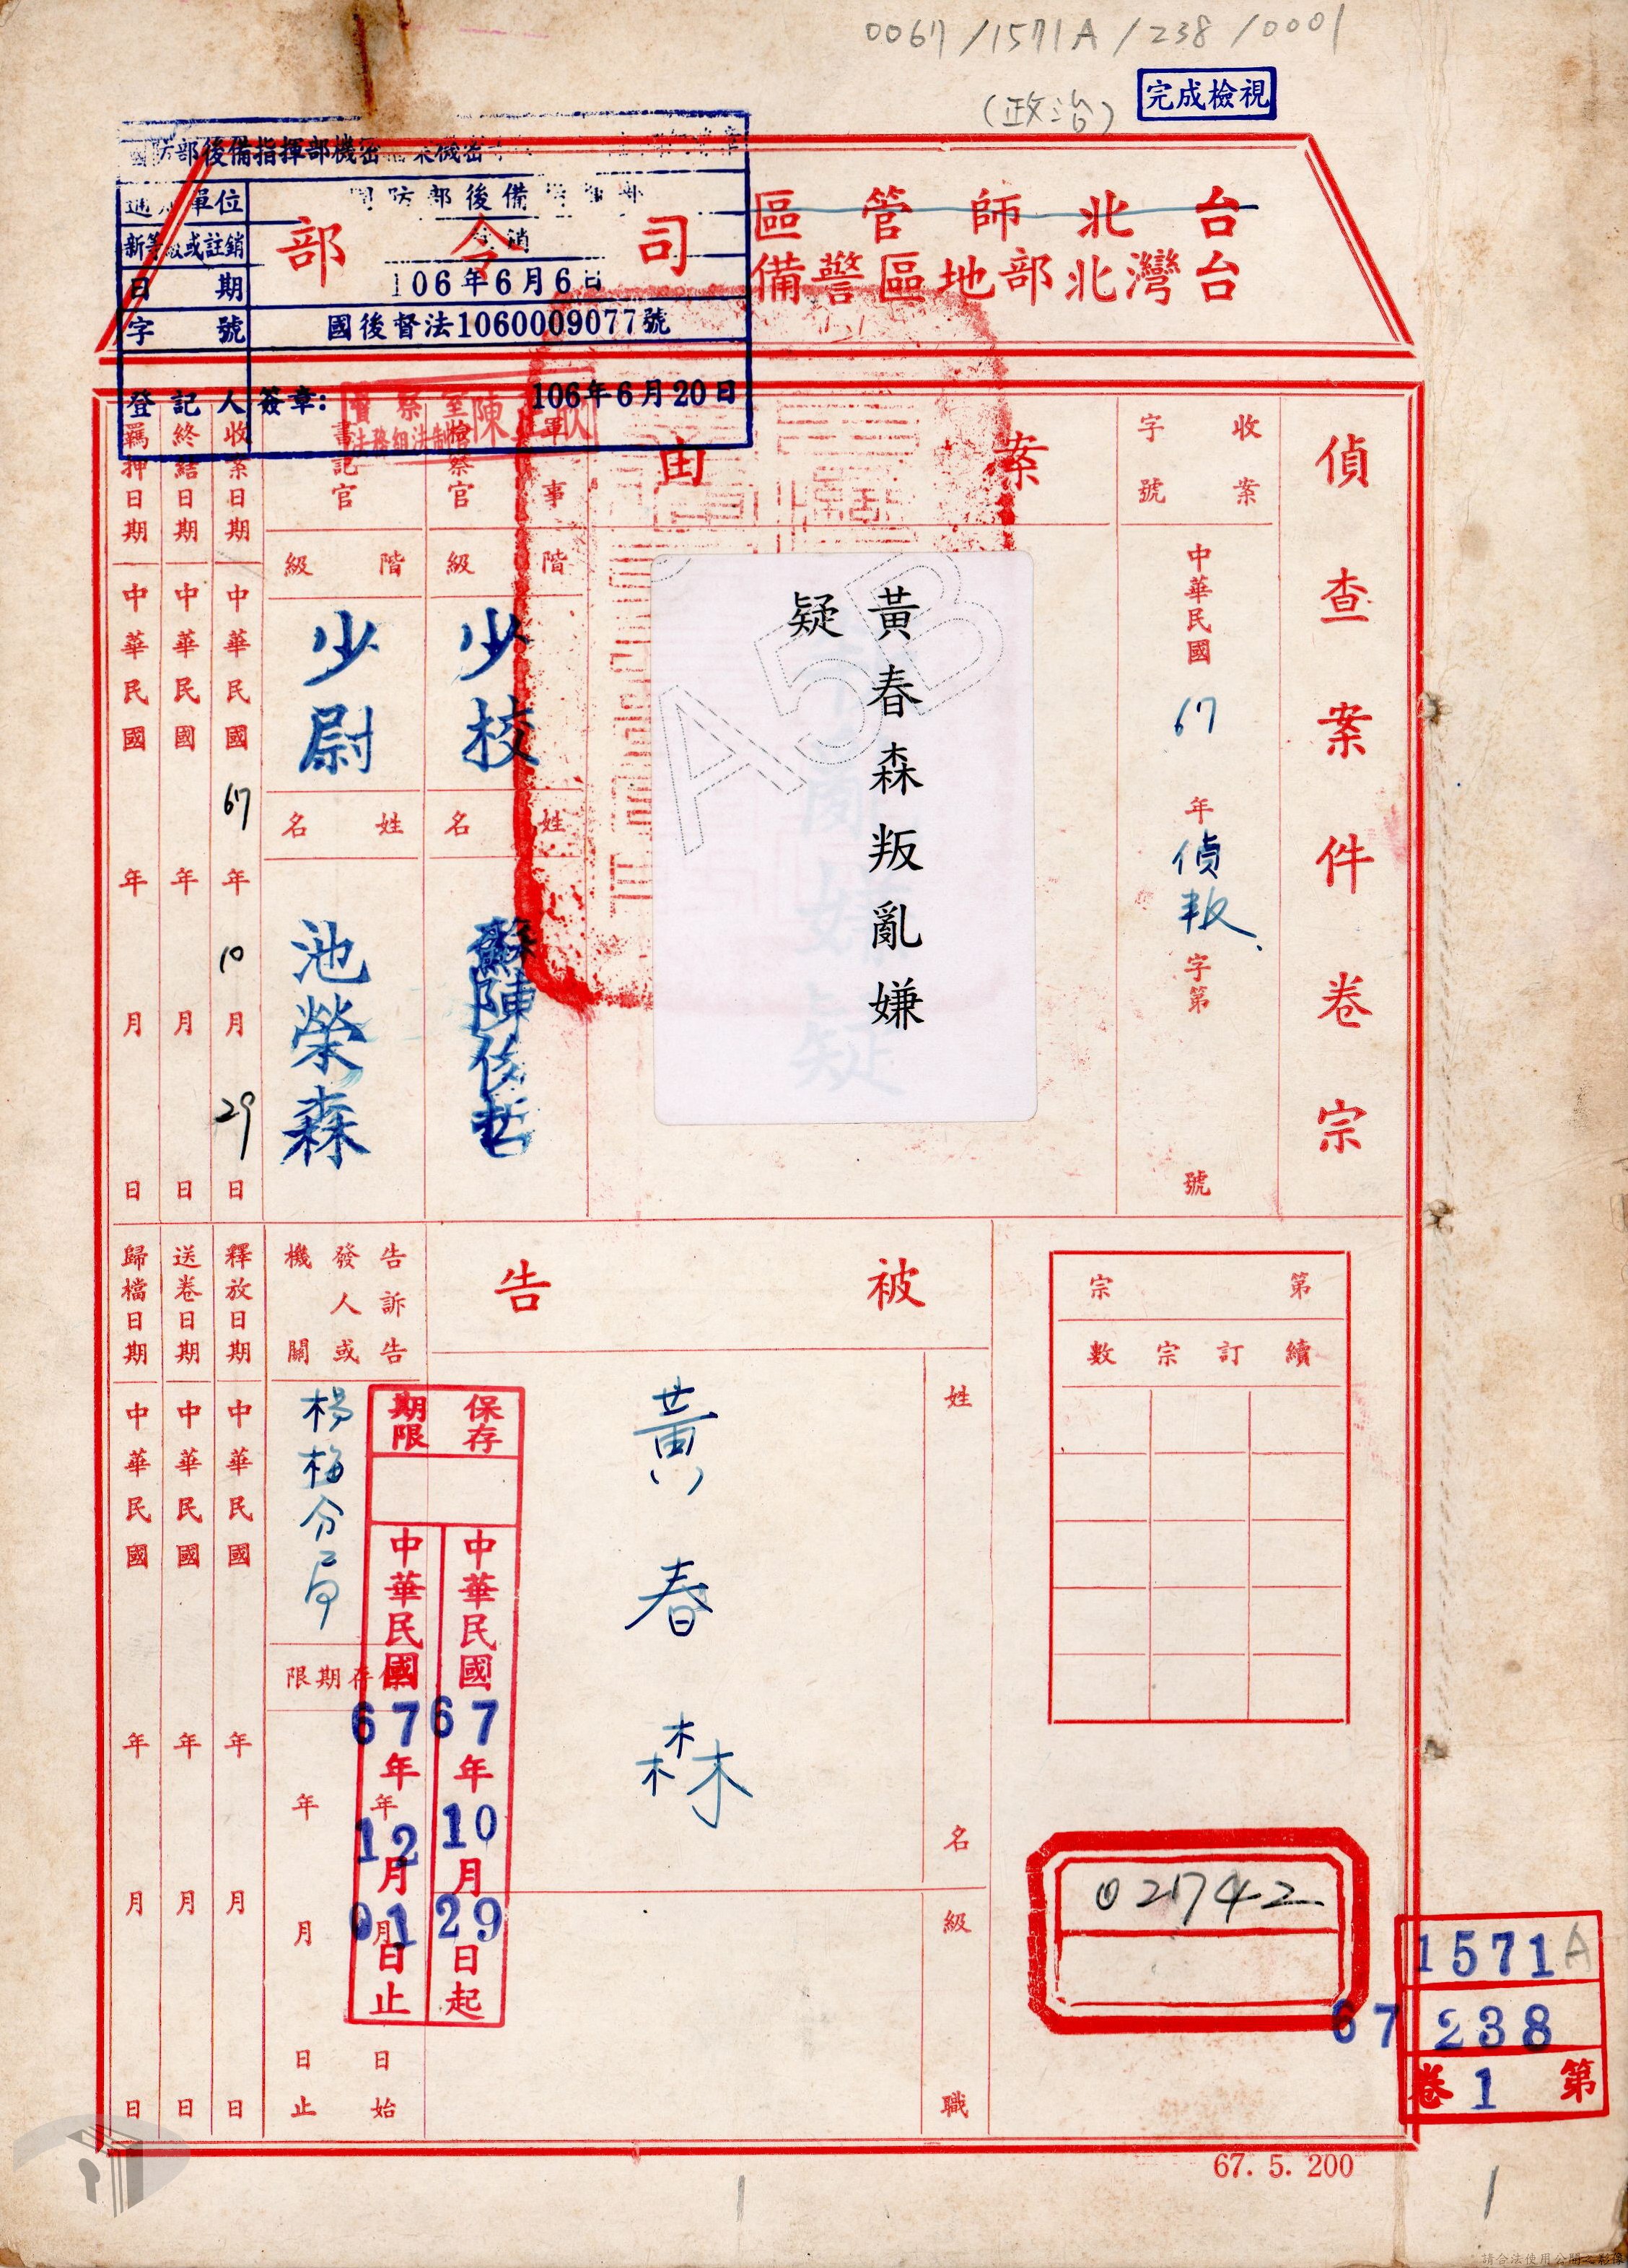 0067/1571A/238/0001
(政治)
完成檢視
台北師管區
台灣北部地區警備
司令部
國防部後備指揮部機密
單位
國防部後備
新等級或註銷
日期
106年6月6日
字號
國後督法1060009077號
登記人簽章:
106年6月20日
偵查案件卷宗
收案字號
中華民國67年偵叛字第號
案由
黃春森叛亂嫌疑
軍事檢察官
階級
少校
姓名
書記官
階級
少尉
姓名
池榮森
收案日期
中華民國67年10月29日
終結日期
中華民國年月日
羈押日期
中華民國年月日
第宗
續訂宗數
被告
姓名
黃春森
級職
告訴告發人或機關
楊梅分局
保存期限
年月日始
年月日止
保存期限
中華民國67年10月29日起
中華民國67年12月01日止
釋放日期
中華民國年月日
送卷日期
中華民國年月日
歸檔日期
中華民國年月日
021742
1571A
67 238
第1卷
67. 5. 200
1
1
請合法使用公開之影像